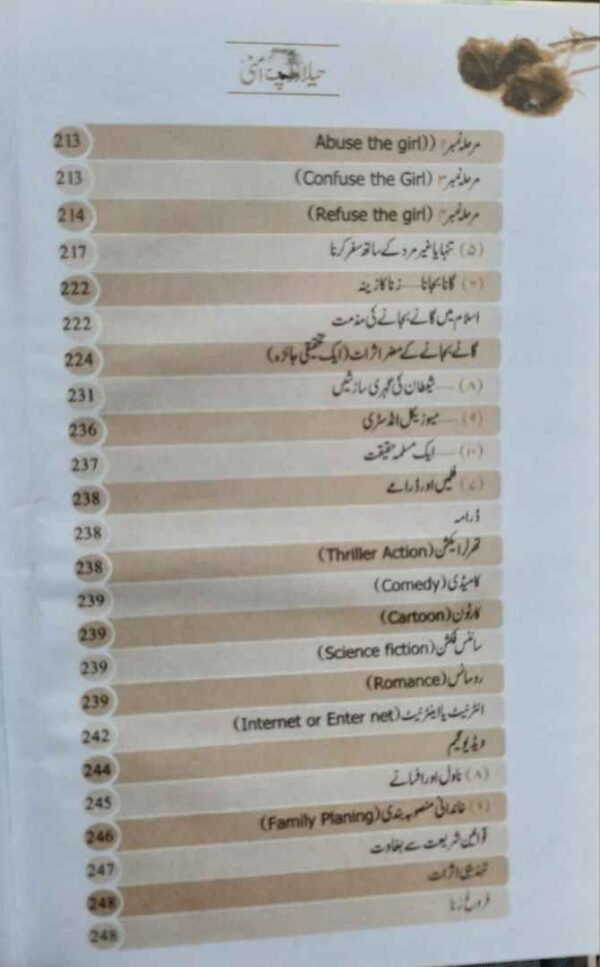 مرحلہ نمبر ((Abuse the girl 213
مرحلہ نمبر (Confuse the Girl) 213
مرحلہ نمبر (Refuse the girl) 214
(۵) تنہا یا غیر مرد کے ساتھ سفر کرنا 217
(۶) گانا بجانا—زنا کا زینہ 222
اسلام میں گانے بجانے کی مذمت 222
گانے بجانے کے مضر اثرات (ایک تحقیقی جائزہ) 224
(۸)—شیطان کی گہری سازشیں 231
(۹)—میوزیکل انڈسٹری 236
(۱۰)—ایک مسلمہ حقیقت 237
(۷) فلمیں اور ڈرامے 238
ڈرامہ 238
تھرلر ایکشن (Thriller Action) 238
کامیڈی (Comedy) 239
کارٹون (Cartoon) 239
سائنس فکشن (Science fiction) 239
رومانس (Romance) 239
انٹرنیٹ یا اینٹرنیٹ (Internet or Enter net) 242
ویڈیو گیم 244
(۸) ناول اور افسانے 245
(۹) خاندانی منصوبہ بندی (Family Planing) 246
قوانین شریعت سے بغاوت 247
تہذیبی اثرات 248
فروغ زنا 248